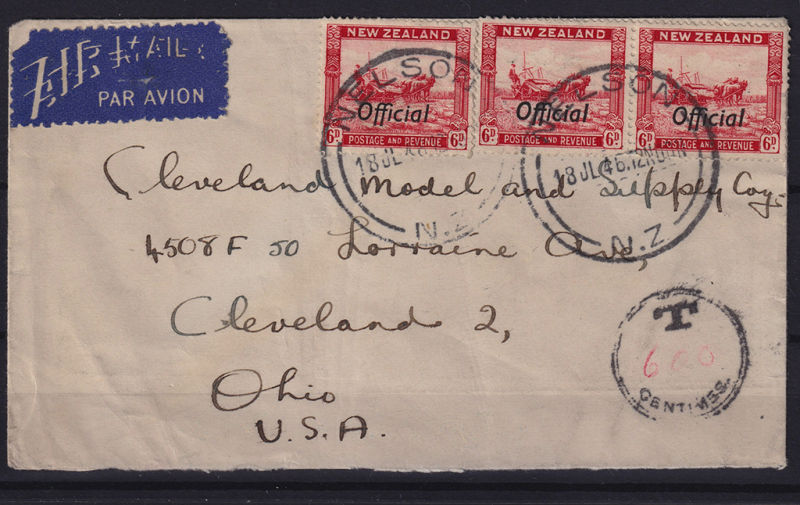 AIR MAIL
PAR AVION
NEW ZEALAND
Official
6D POSTAGE AND REVENUE 6D
NEW ZEALAND
Official
6D POSTAGE AND REVENUE 6D
NEW ZEALAND
Official
6D POSTAGE AND REVENUE 6D
NELSON
18 JL
N.Z
NELSON
18 JL 46.12NOON
N.Z
Cleveland Model and Supply Coy.
4508F 50 Lorraine Ave,
Cleveland 2,
Ohio
U.S.A.
T
600
CENTIMES.